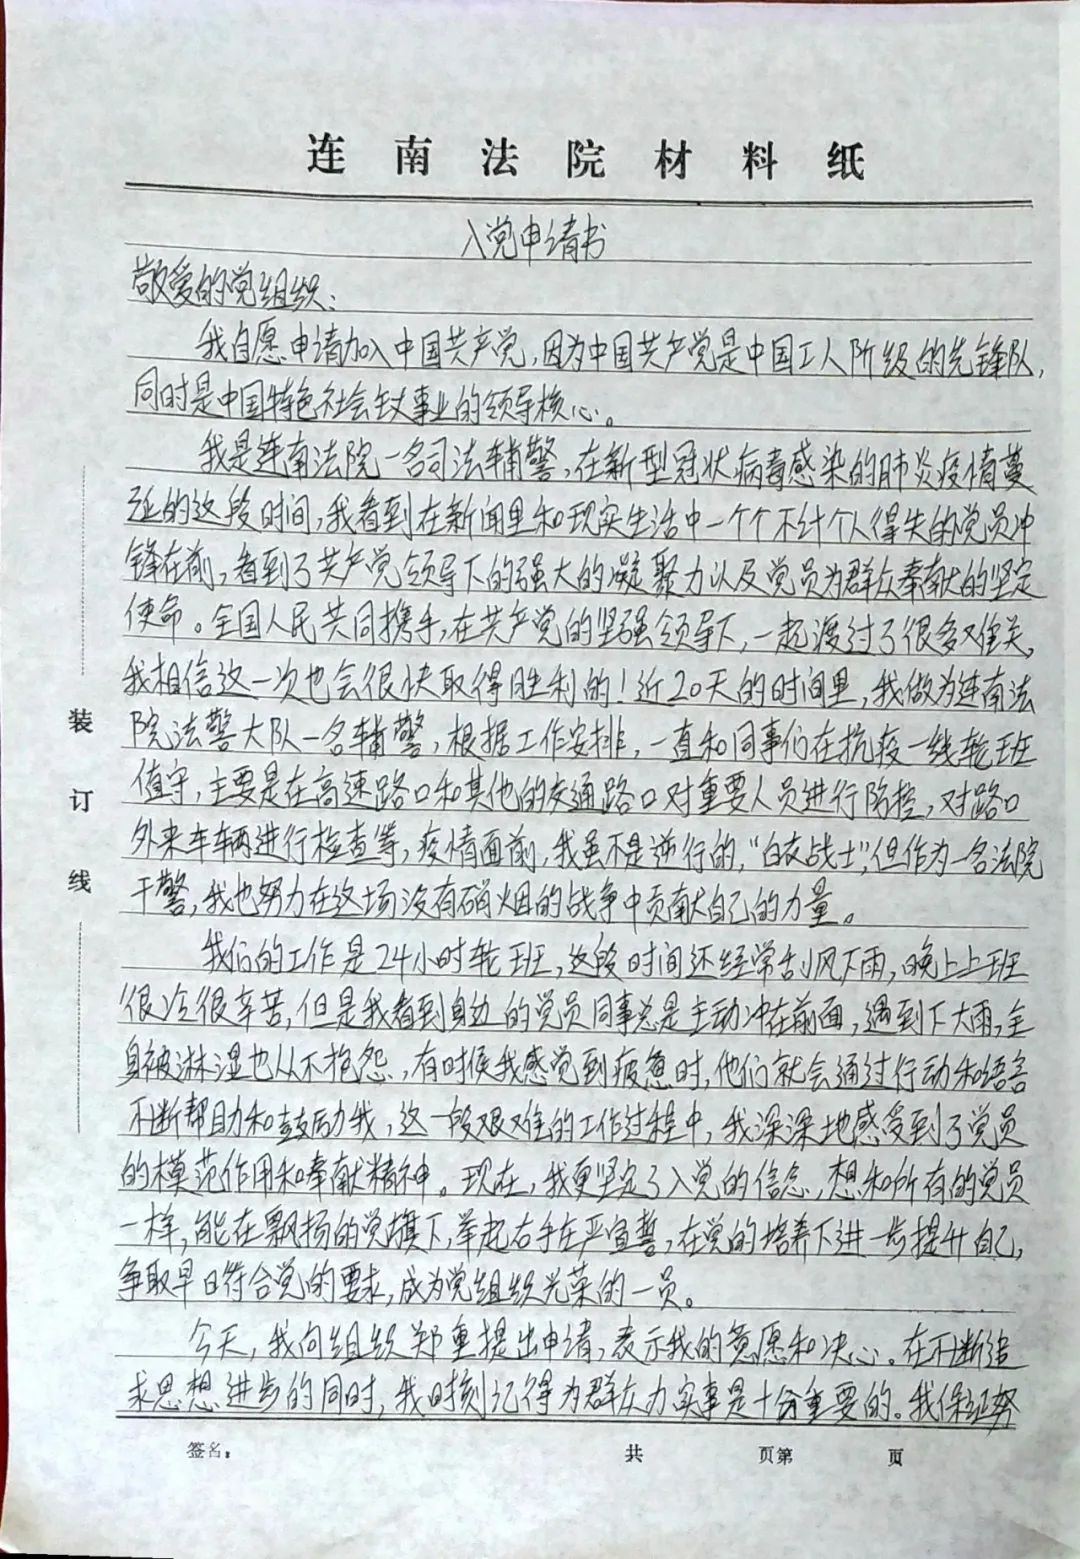 连南法院材料纸
入党申请书
敬爱的党组织：
我自愿申请加入中国共产党，因为中国共产党是中国工人阶级的先锋队，
同时是中国特色社会主义事业的领导核心。
我是连南法院一名司法辅警，在新型冠状病毒感染的肺炎疫情蔓
延的这段时间，我看到在新闻里和现实生活中一个个不计个人得失的党员冲
锋在前，看到了共产党领导下的强大的凝聚力以及党员为群众奉献的坚定
使命。全国人民共同携手，在共产党的坚强领导下，一起渡过了很多难关，
我相信这一次也会很快取得胜利的！近20天的时间里，我做为连南法
院法警大队一名辅警，根据工作安排，一直和同事们在抗疫一线轮班
值守，主要是在高速路口和其他的交通路口对重要人员进行防控，对路口
外来车辆进行检查等，疫情面前，我虽不是逆行的，“白衣战士”，但作为一名法院
干警，我也努力在这场没有硝烟的战争中贡献自己的力量。
我们的工作是24小时轮班，这段时间还经常刮风下雨，晚上上班
很冷很辛苦，但是我看到身边的党员同事总是主动冲在前面，遇到下大雨，全
身被淋湿也从不抱怨，有时候我感觉到疲惫时，他们就会通过行动和语言
不断帮助和鼓励我，这一段艰难的工作过程中，我深深地感受到了党员
的模范作用和奉献精神。现在，我更坚定了入党的信念，想和所有的党员
一样，能在飘扬的党旗下，举起右手庄严宣誓，在党的培养下进一步提升自己，
争取早日符合党的要求，成为党组织光荣的一员。
今天，我向组织郑重提出申请，表示我的意愿和决心。在不断追
求思想进步的同时，我时刻记得为群众办实事是十分重要的。我保证努
装订线
签名： 共 页第 页